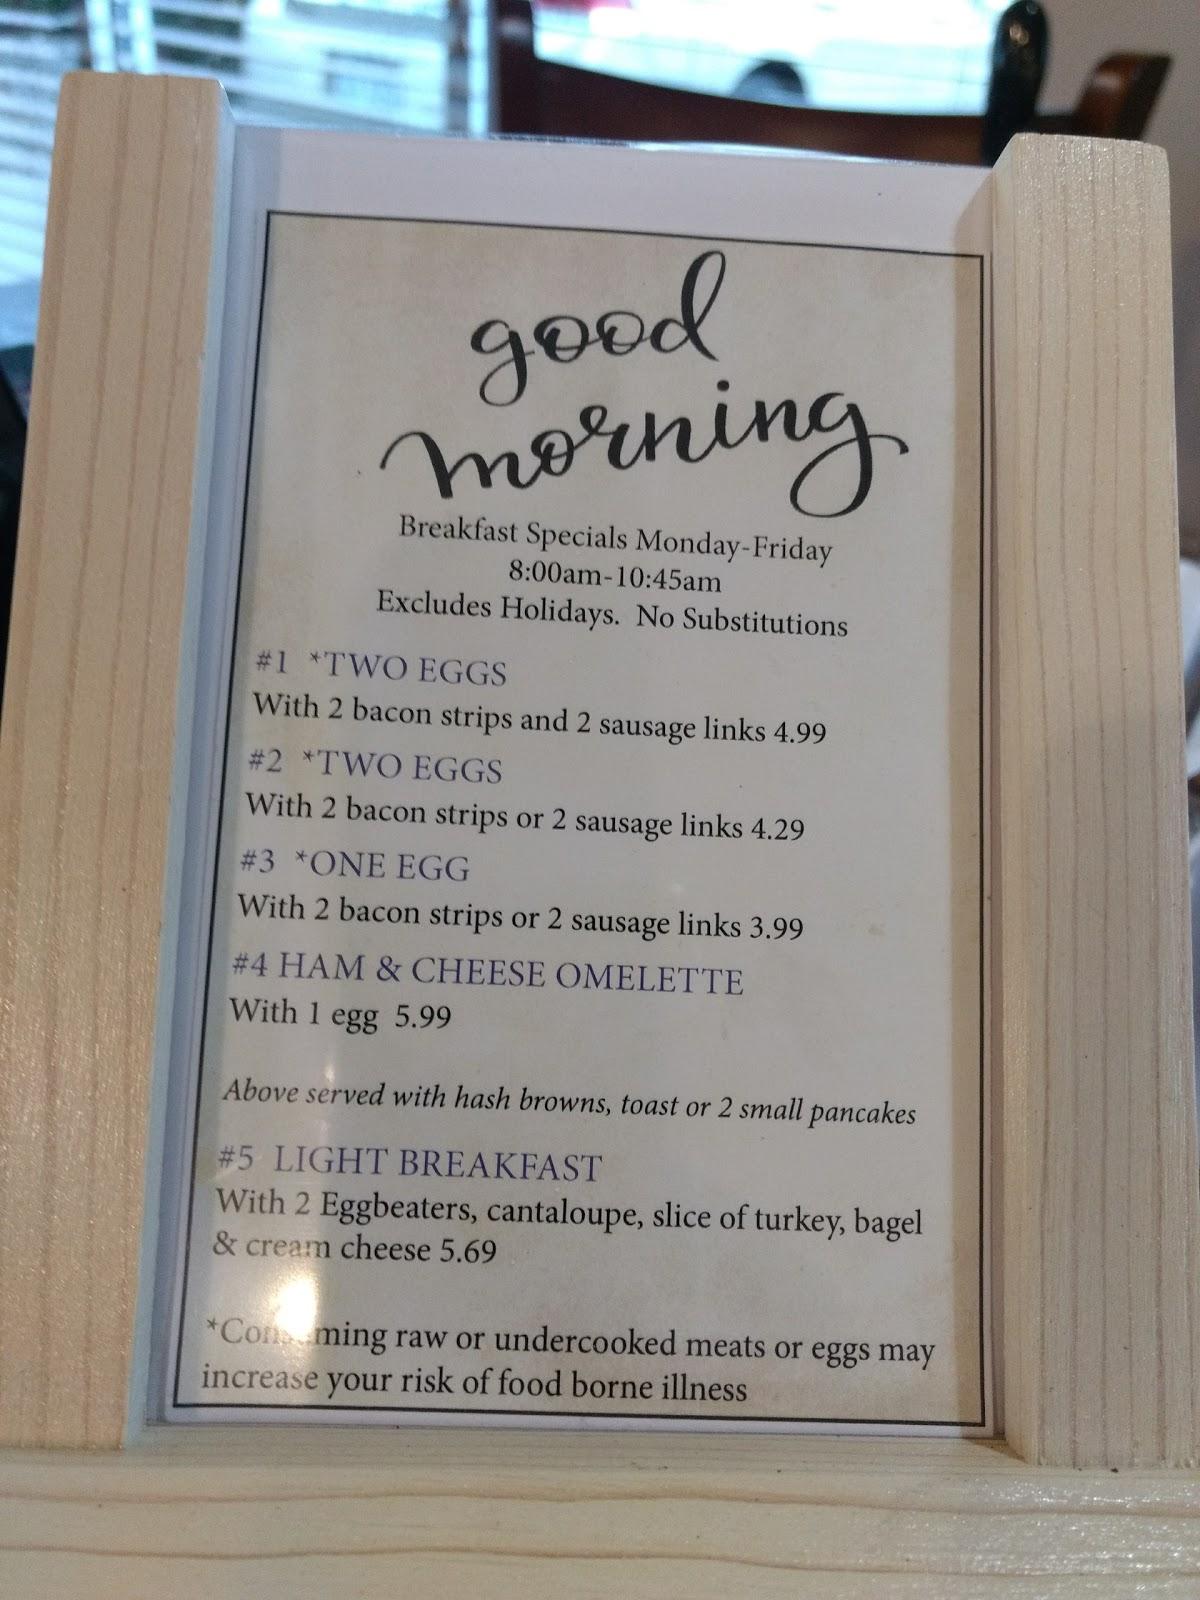 good
morning
Breakfast Specials Monday-Friday
8:00am-10:45am
Excludes Holidays. No Substitutions
#1 *TWO EGGS
With 2 bacon strips and 2 sausage links 4.99
#2 *TWO EGGS
With 2 bacon strips or 2 sausage links 4.29
#3 *ONE EGG
With 2 bacon strips or 2 sausage links 3.99
#4 HAM & CHEESE OMELETTE
With 1 egg 5.99
Above served with hash browns, toast or 2 small pancakes
#5 LIGHT BREAKFAST
With 2 Eggbeaters, cantaloupe, slice of turkey, bagel
& cream cheese 5.69
*Consuming raw or undercooked meats or eggs may
increase your risk of food borne illness